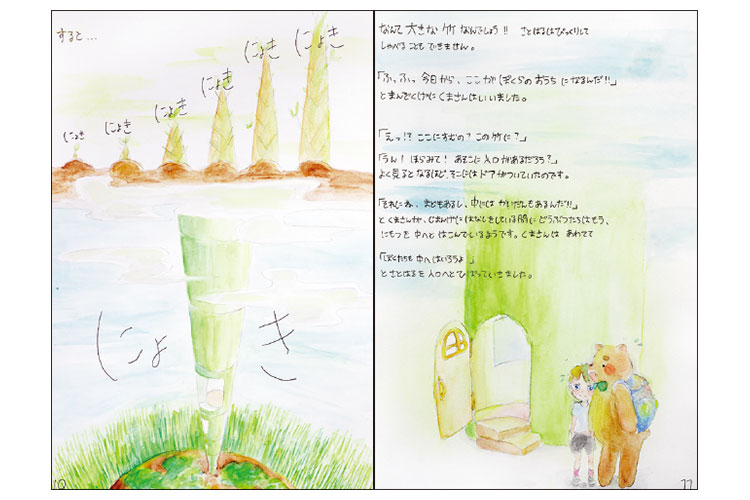 すると…
にょき
にょき
にょき
にょき
にょき
にょき
にょき
10
なんて大きな竹なんでしょう!! さとはるはびっくりして
しゃべることもできません。
「ふ、ふ、今日から、ここがぼくらのおうちになるんだ!!」
とまんぞくげにくまさんはいいました。
「えっ!? ここにすむの? この竹に?」
「うん! ほらみて! あそこに入口があるだろう?」
よく見るとなるほど、そこにはドアがついていたのです。
「それにね、まどもあるし、中にはかいだんもあるんだ!!」
とくまさんが、じまんげにはなしをしている間にどうぶつたちはもう、
にもつを中へとはこんでいるようです。くまさんはあわてて
「ぼくたちも中へはいろうよ」
とさとはるを入口へとひっぱっていきました。
11